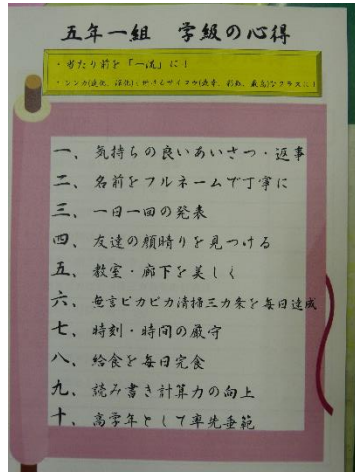 五年一組　学級の心得
・当たり前を「一流」に！
一、気持ちの良いあいさつ・返事
二、名前をフルネームで丁寧に
三、一日一回の発表
四、友達の顔晴りを見つける
五、教室・廊下を美しく
六、無言ピカピカ清掃三カ条を毎日達成
七、時刻・時間の厳守
八、給食を毎日完食
九、読み書き計算力の向上
十、高学年として率先垂範